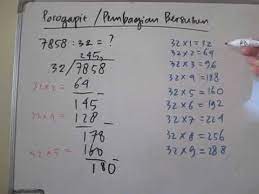 Porogapit / Pembagian Bersusun
7858 : 32 = ?
245,
32 / 7858
32 x 2 = 64
145
32 x 4 = 128
178
32 x 5 = 160
180
32 x 1 = 32
32 x 2 = 64
32 x 3 = 96
32 x 4 = 128
32 x 5 = 160
32 x 6 = 192
32 x 7 = 224
32 x 8 = 256
32 x 9 = 288